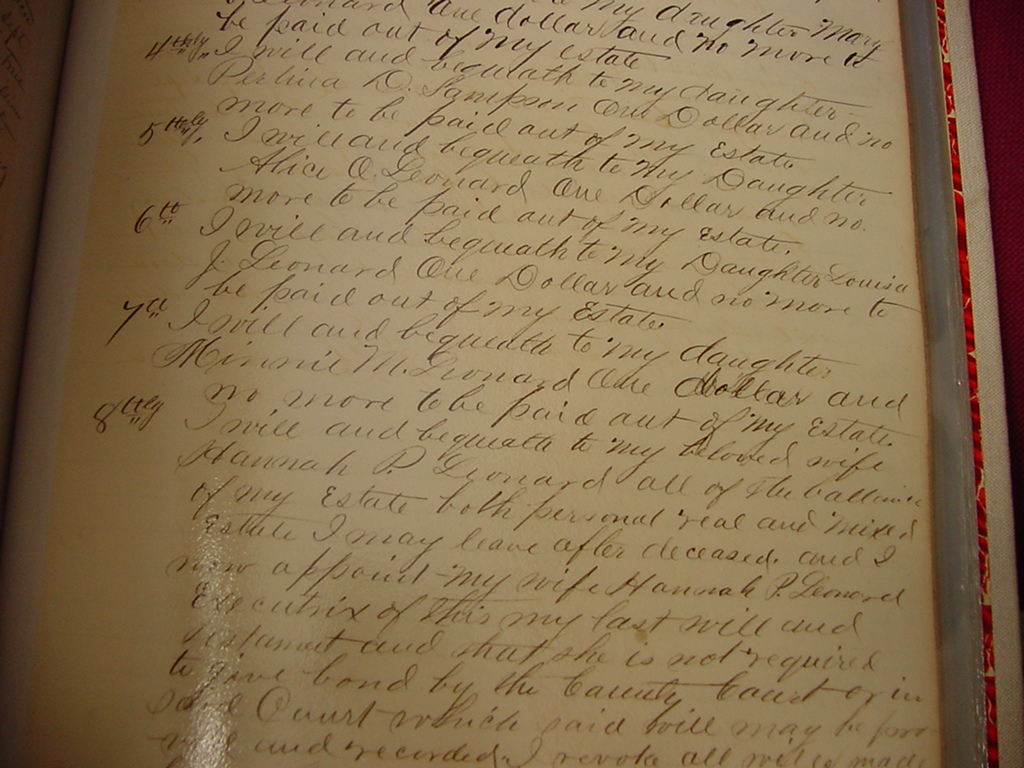 Leonard One dollar and no more to my daughter Mary
be paid out of my estate
4thly I will and bequeath to my daughter
Perlina D. Sampson One Dollar and no
more to be paid out of my Estate
5thly I will and bequeath to my Daughter
Alice O. Leonard One Dollar and no
more to be paid out of my Estate.
6th I will and bequeath to my Daughter Louisa
J Leonard One Dollar and no more to
be paid out of my Estate
7th I will and bequeath to my daughter
Minnie M. Leonard One dollar and
no more to be paid out of my Estate.
8thly I will and bequeath to my beloved wife
Hannah P. Leonard all of the ballance
of my Estate both personal real and mixed
Estate I may leave after deceased. and I
now appoint my wife Hannah P. Leonard
Executrix of this my last will and
testament and that she is not required
to give bond by the County Court or in
said Court which said will may be pro-
and recorded. I revoke all wills made